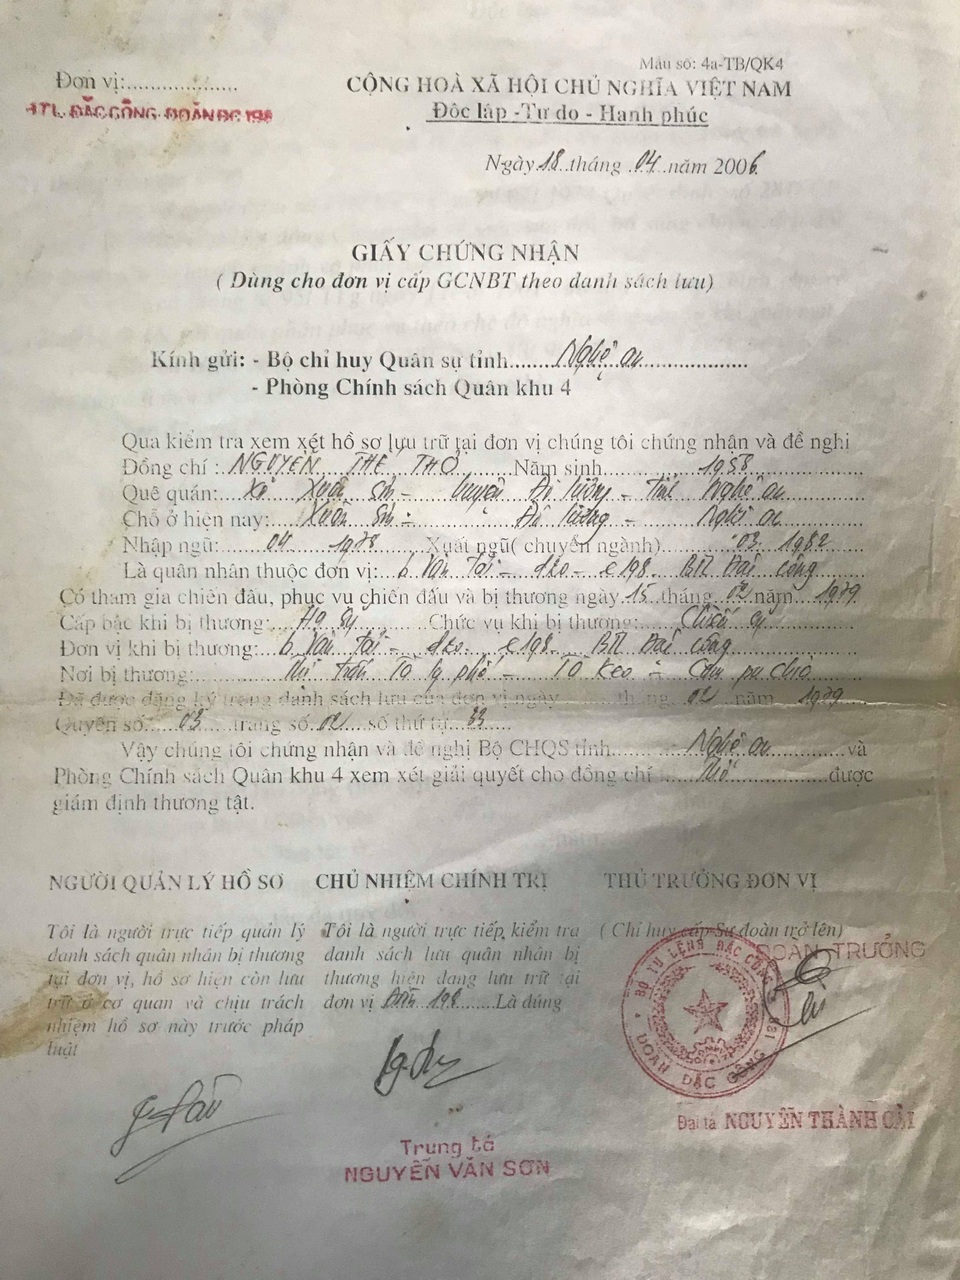 Mẫu số: 4a-TB/QK4
Đơn vị:....................
BTL. ĐẶC CÔNG-ĐOÀN ĐC 198
CỘNG HOÀ XÃ HỘI CHỦ NGHĨA VIỆT NAM
Độc lập -Tự do - Hạnh phúc
Ngày 18..tháng .04..năm 2006
GIẤY CHỨNG NHẬN
( Dùng cho đơn vị cấp GCNBT theo danh sách lưu)
Kính gửi: - Bộ chỉ huy Quân sự tỉnh.......Nghệ an..................
- Phòng Chính sách Quân khu 4
Qua kiểm tra xem xét hồ sơ lưu trữ tại đơn vị chúng tôi chứng nhận và đề nghi
Đồng chí :..NGUYỄN THẾ THỌ........Năm sinh.............1958
Quê quán: Xã Xuân Sơn - huyện Đô lương - tỉnh Nghệ an
Chỗ ở hiện nay: Xuân Sơn - Đô lương - Nghệ an
Nhập ngũ:......04...1978......Xuất ngũ( chuyển ngành)........03. 1982
Là quân nhân thuộc đơn vị: b Vận tải - d20 - e198. BTL Đặc công
Có tham gia chiến đấu, phục vụ chiến đấu và bị thương ngày 15 tháng 02 năm 1979
Cấp bậc khi bị thương: Hạ sỹ...... Chức vụ khi bị thương:......Chiến sỹ
Đơn vị khi bị thương: b Vận tải - d20 - e198 BTL Đặc công
Nơi bị thương: Thị trấn - Ta Keo - Căm pu chia
Đã được đăng ký trong danh sách lưu của đơn vị ngày........tháng..02..năm..1979
Quyển số:...03...trang số..02..số thứ tự..33
Vậy chúng tôi chứng nhận và đề nghị Bộ CHQS tỉnh..........Nghệ an.........và
Phòng Chính sách Quân khu 4 xem xét giải quyết cho đồng chí ......Thọ............được
giám định thương tật.
NGƯỜI QUẢN LÝ HỒ SƠ CHỦ NHIỆM CHÍNH TRỊ THỦ TRƯỞNG ĐƠN VỊ
Tôi là người trực tiếp quản lý
danh sách quân nhân bị thương
tại đơn vị, hồ sơ hiện còn lưu
trữ ở cơ quan và chịu trách
nhiệm hồ sơ này trước pháp
luật
Tôi là người trực tiếp kiểm tra
danh sách lưu quân nhân bị
thương hiện đang lưu trữ tại
đơn vị Đoàn 198.......Là đúng
( Chỉ huy cấp Sư đoàn trở lên)
ĐOÀN TRƯỞNG
BỘ TƯ LỆNH ĐẶC CÔNG
ĐOÀN ĐẶC CÔNG 198
Trung tá
NGUYỄN VĂN SƠN
Đại tá NGUYỄN THÀNH CẢI